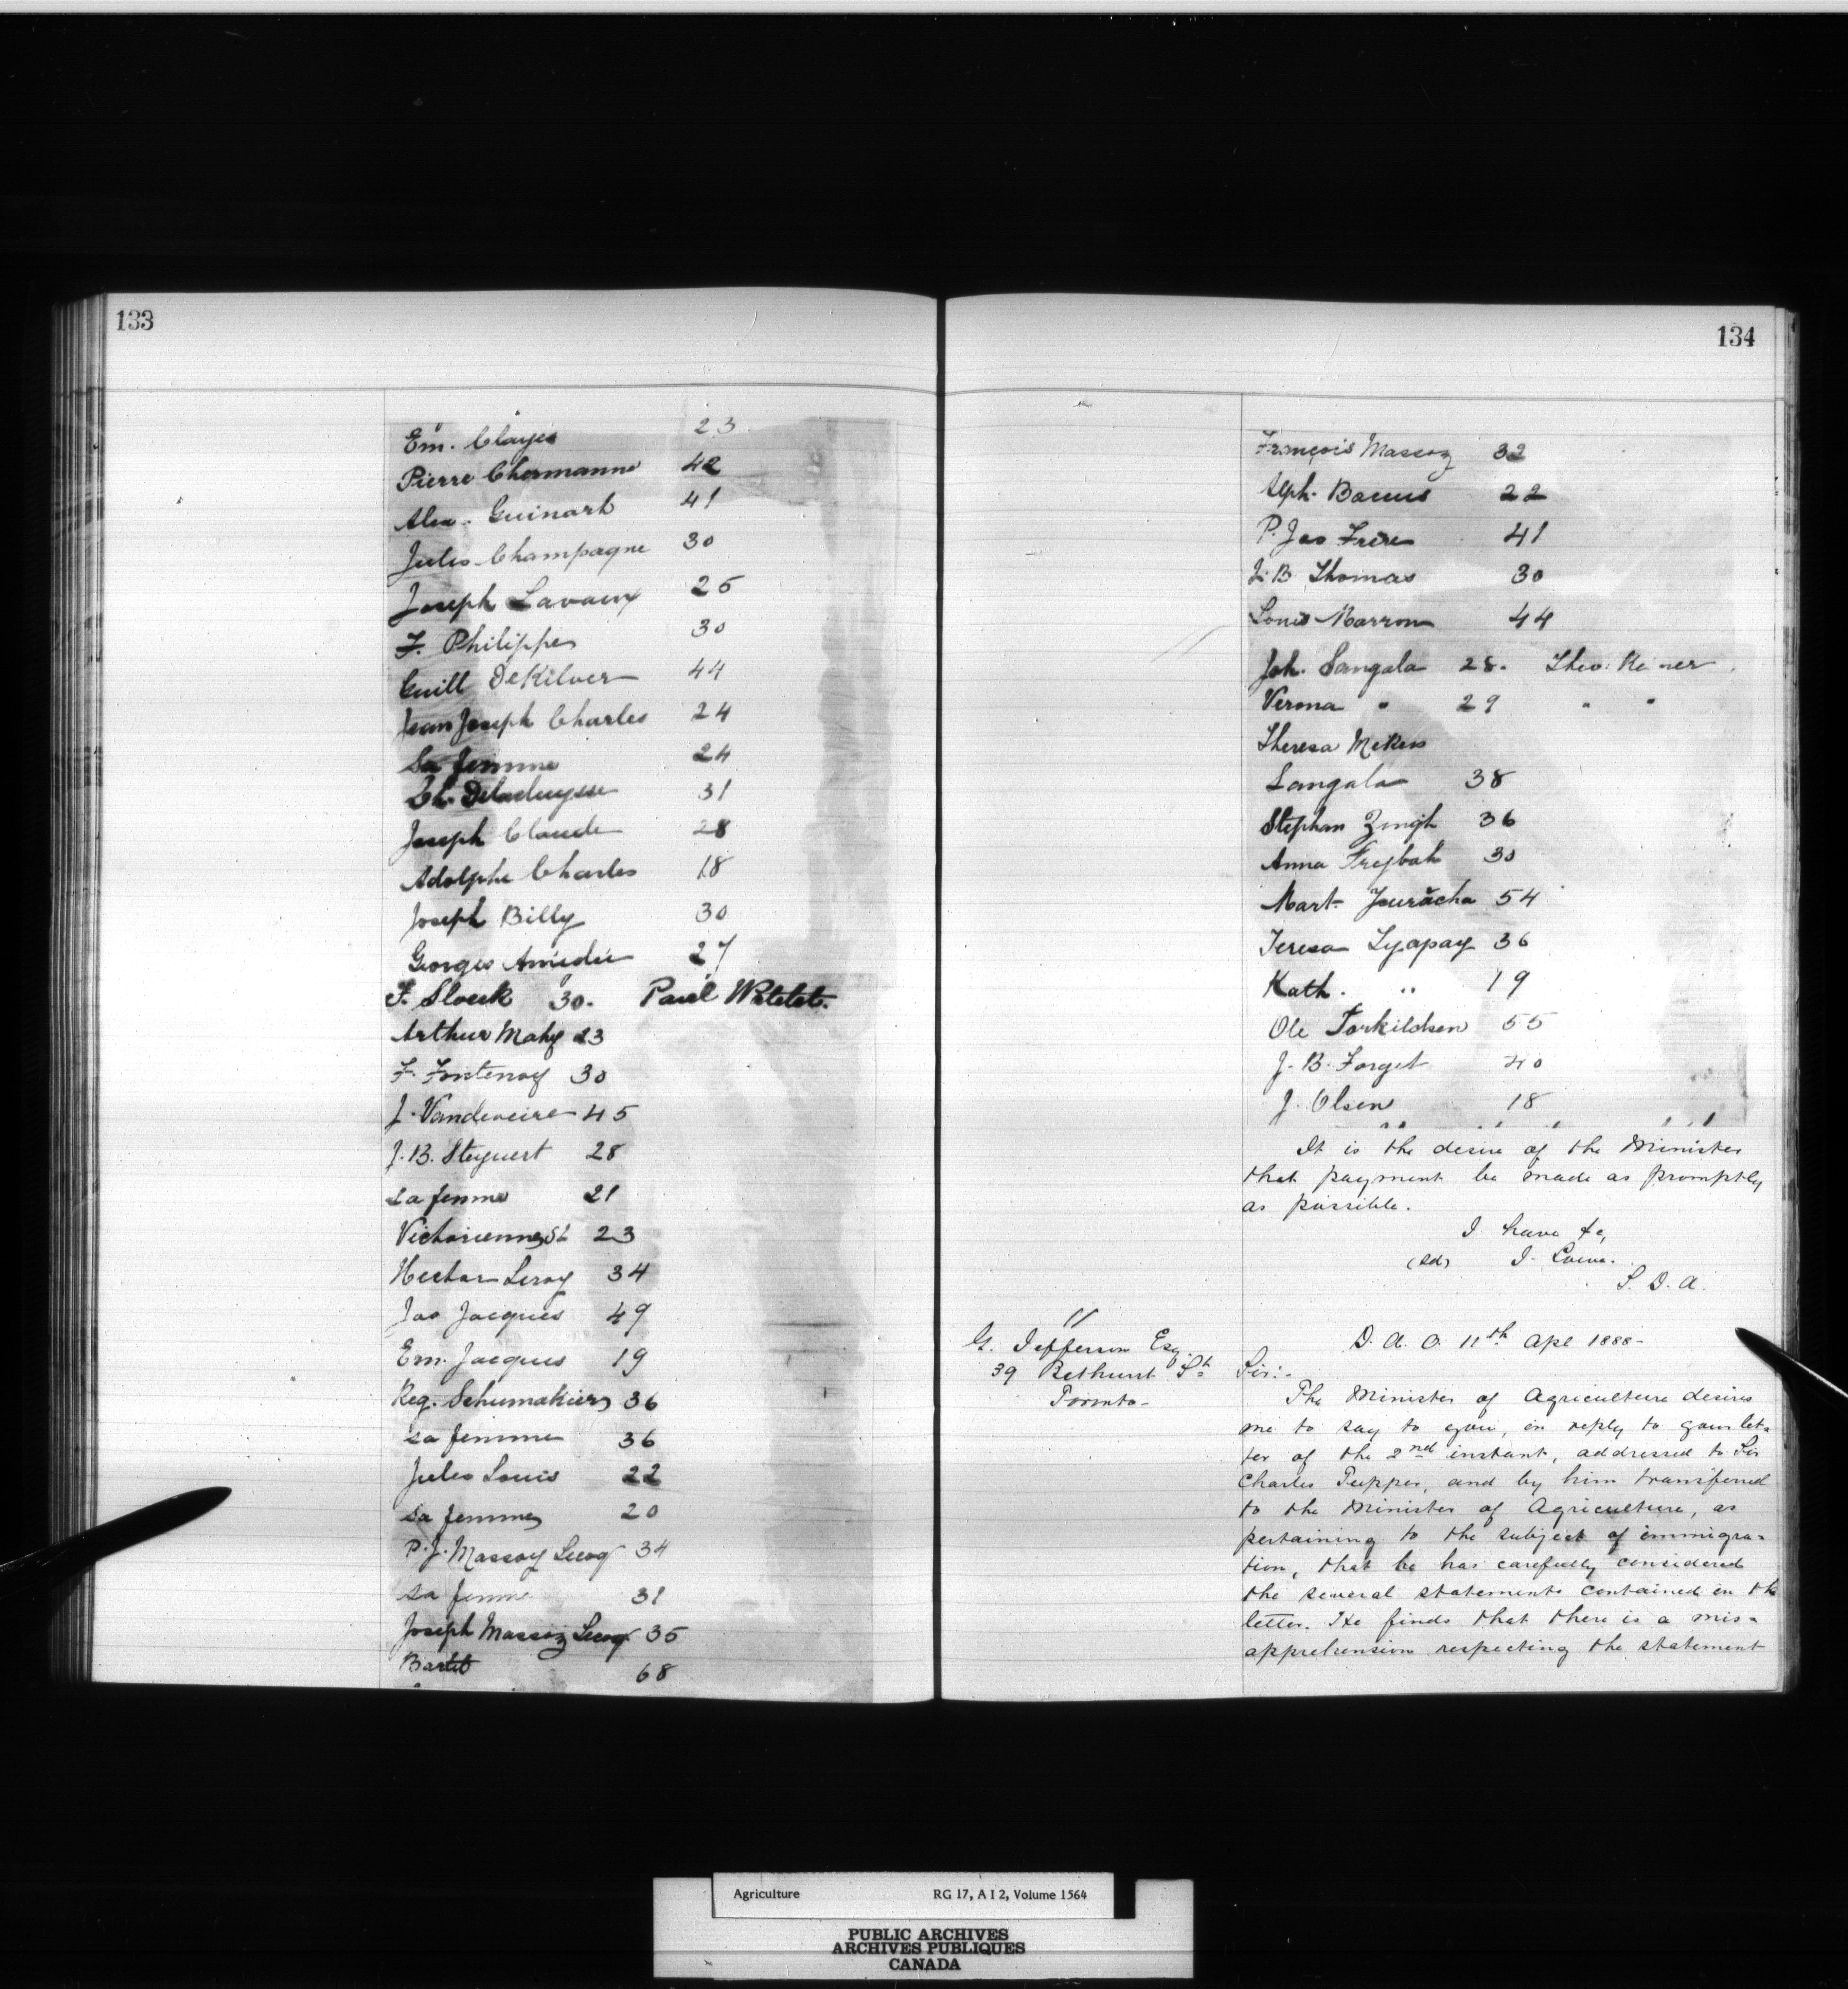 133
Em. Clayes 23
Pierre Chermanne 42
Alex. Guinart 41
Jules Champagne 30
Joseph Lavaux 25
F. Philippe 30
Guill DeKilver 44
Jean Joseph Charles 24
Sa femme 24
Ch. 31
Joseph Claude 28
Adolphe Charles 18
Joseph Billy 30
Georges Amédée 27
F. Sloeck 30. Paul
Arthur Mahy 23
F. Fontenoy 30
J. Vandeveire 45
J. B. Steyuert 28
sa femme 21
Victorienne St 23
Hector Leroy 34
Jas Jacques 49
Em. Jacques 19
Reg. Schumakiers 36
sa femme 36
Jules Louis 22
sa femme 20
P. J. Massoz Lecoq 34
sa femme 31
Joseph Massoz Lecoq 35
68
134
François Massoz 32
Alph. Bacus 22
P. Jas Frère 41
J. B Thomas 30
Louis Marron 44
Joh. Sangala 28. Theo.
Verona " 29 " "
Theresa
Sangala 38
Stephan Zingh 36
Anna Frejbah 30
Mart. Juracha 54
Teresa Lyapay 36
Kath. " 19
Ole Torkildsen 55
J. B. Forget 40
J. Olsen 18
It is the desire of the Minister
that payment be made as promptly
as possible.
I have &c,
(sd) J. Lowe.
S. D. A.
11
G. Jefferson Esq.
39 Bethurst St
Toronto-
D. A. O. 11th Apl 1888-
Sir:-
The Minister of Agriculture desires
me to say to you, in reply to your let=
ter of the 2nd instant, addressed to Sir
Charles Tupper, and by him transferred
to the Minister of Agriculture, as
pertaining to the subject of immigra=
tion, that he has carefully considered
the several statements contained in the
letter. He finds that there is a mis=
apprehension respecting the statement
Agriculture RG 17, A I 2, Volume 1564
PUBLIC ARCHIVES
ARCHIVES PUBLIQUES
CANADA